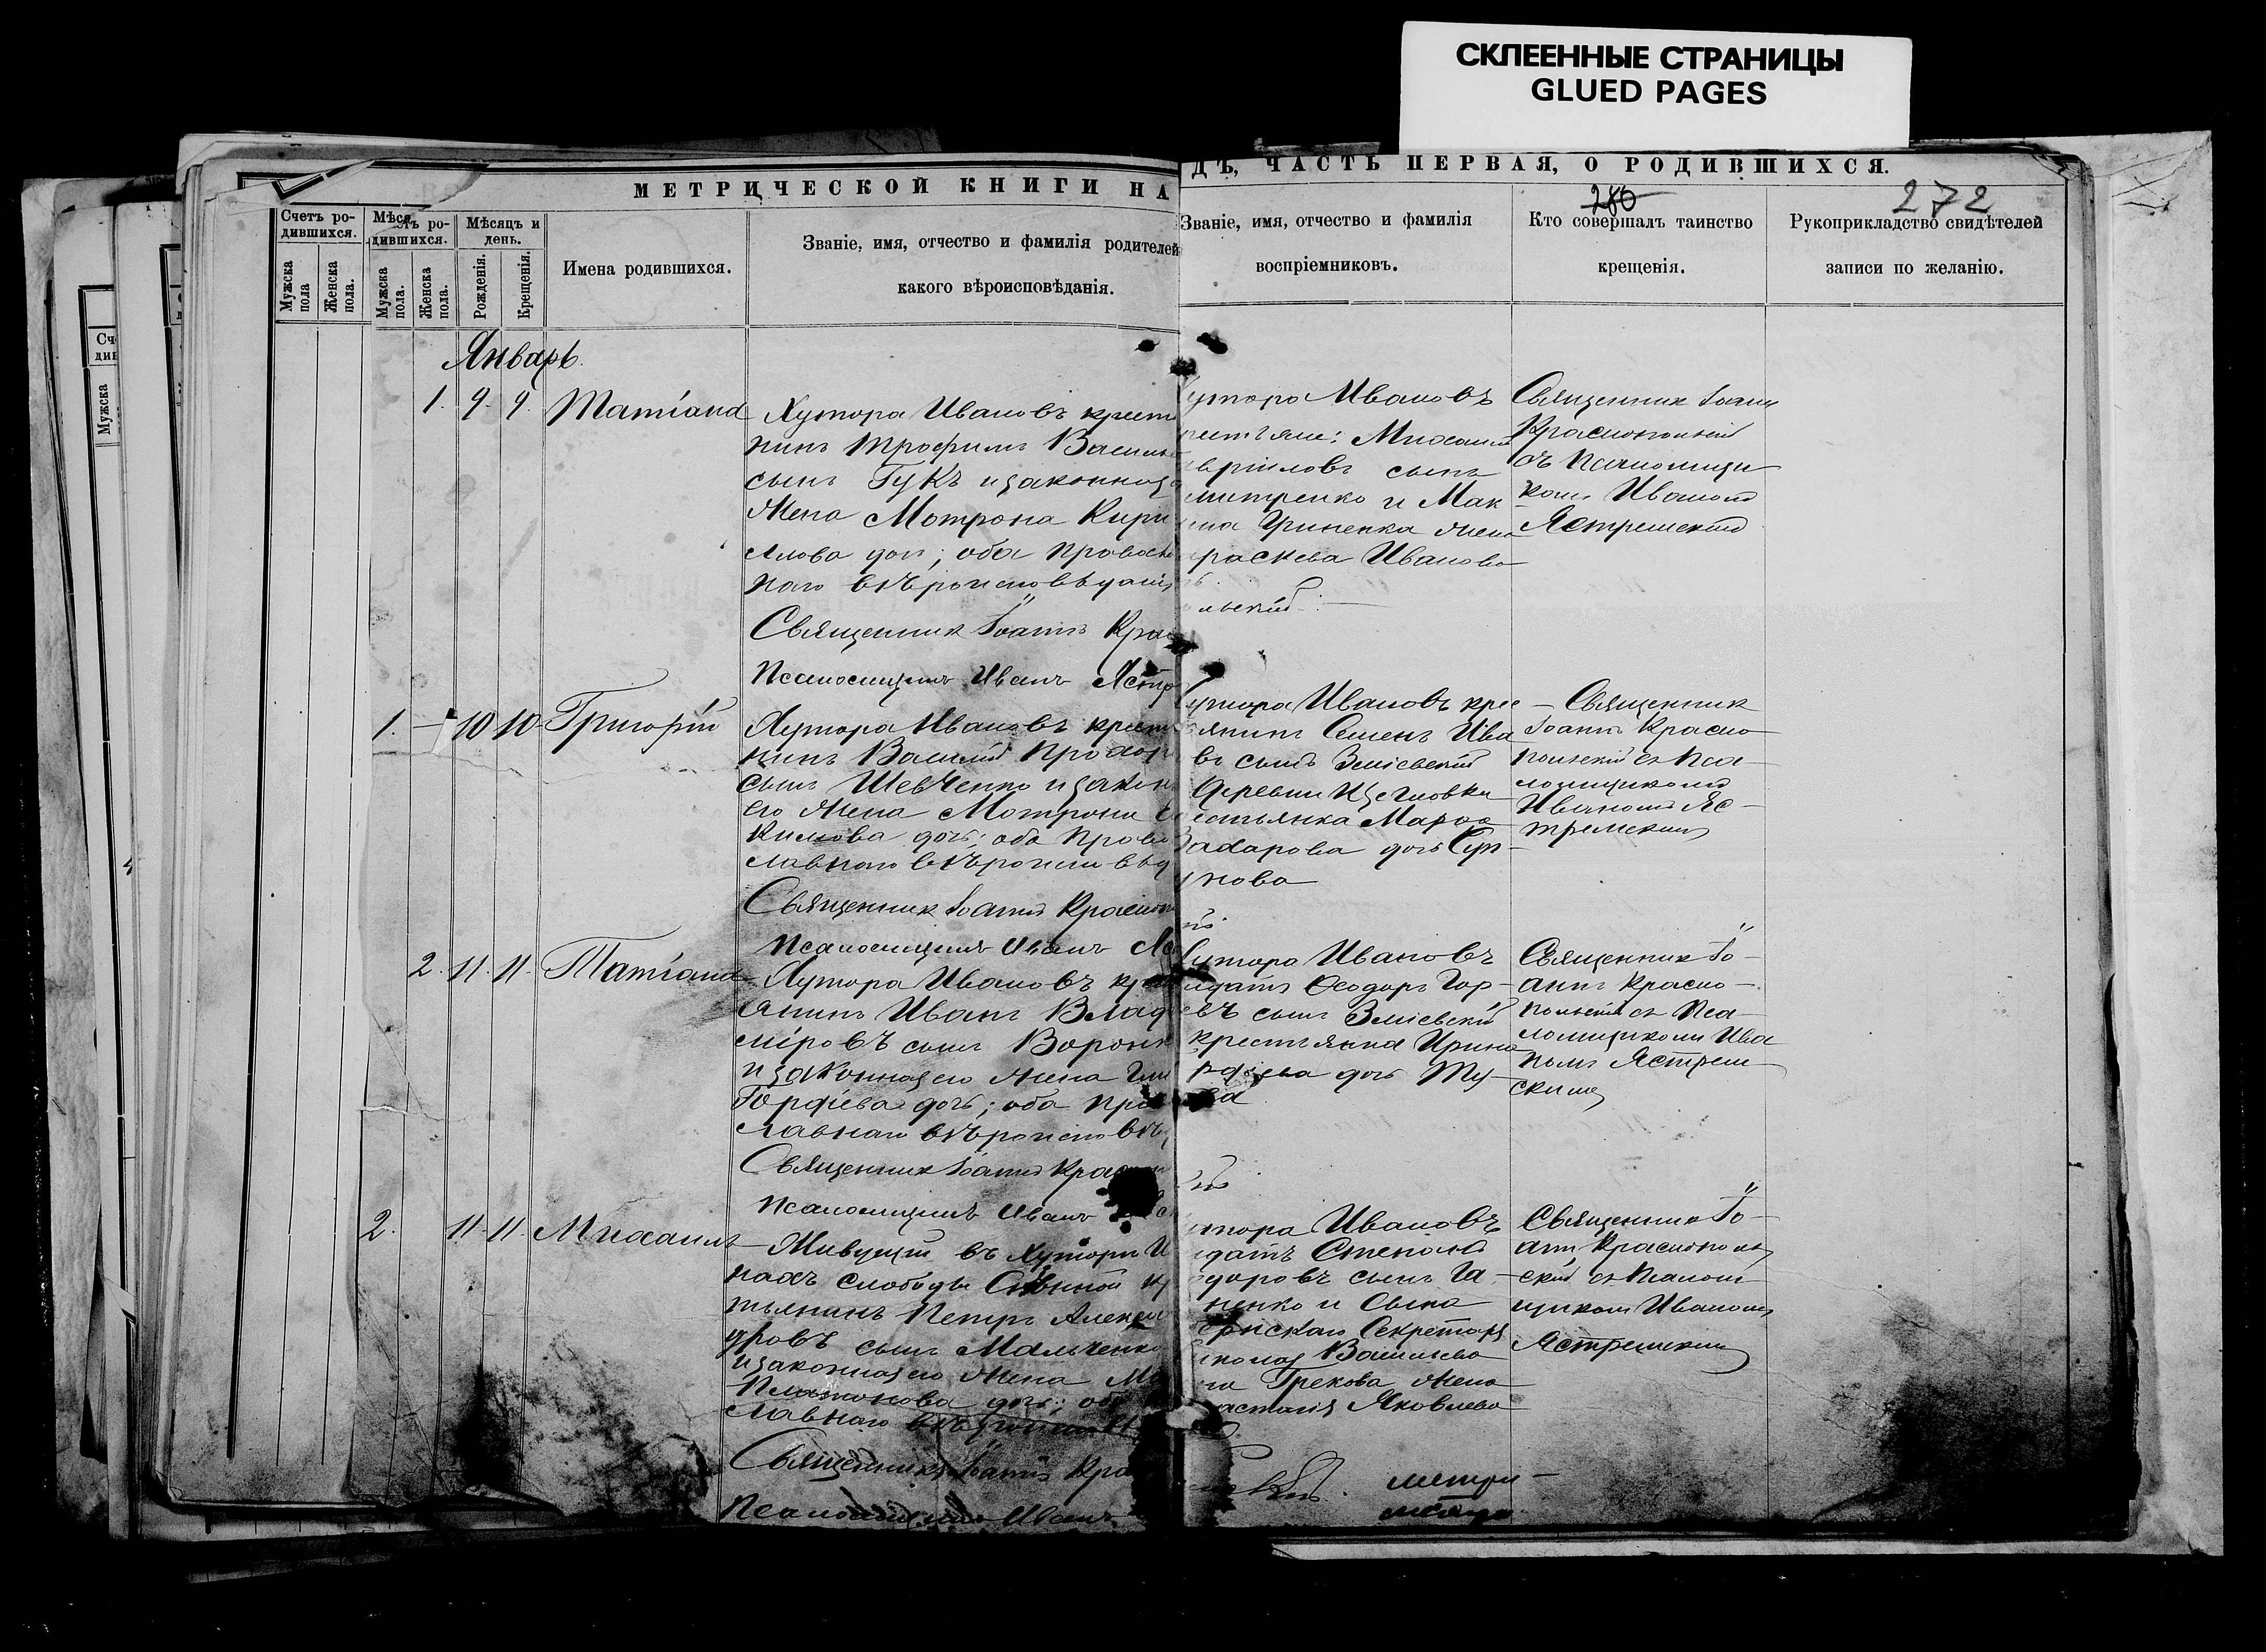 СКЛЕЕННЫЕ СТРАНИЦЫ
GLUED PAGES
МЕТРИЧЕСКОЙ КНИГИ НА
ДЪ, ЧАСТЬ ПЕРВАЯ, О РОДИВШИХСЯ.
280
272
Счетъ ро-
дившихся.
Мужска
пола
Женска
пола.
Мѣся
ъ ро-
дившихся.
Мужска
пола.
Женска
пола.
Мѣсяцъ и
день.
Рожденія.
Крещенія.
Имена родившихся.
Званіе, имя, отчество и фамилія родителей
какого вѣроисповѣданія.
Званіе, имя, отчество и фамилія
воспріемниковъ.
Кто совершалъ таинство
крещенія.
Рукоприкладство свидѣтелей
записи по желанію.
Январь.
1. 9. 9. Татіана
Хутора Ивановъ крест
нинъ Трофимъ Василь
сынъ Гукъ и законная
жена Мотрона Кири
лова доч; оба правос
наго вѣроисповѣдані
Священник Іоаннъ Крас
Псаломщикъ Иванъ Ястр
утора Ивановъ
рестьяне: Михаилъ
вриловъ сынъ
митренко и Мак
има Гриненка жена
раскева Иванова
ольскій
Священник Іоанн
Краснопольскій
съ Псаломщи
комъ Иваномъ
Ястремскимъ
1. — 10 10 Григорій
Хутора Ивановъ крест
нинъ Василій Прохор
сынъ Шевченко и закон
его жена Мотрона
кимова доч; оба Право
славнаго вѣроисповѣд
Священник Іоаннъ Красноп
Псаломщикъ Иванъ Яс
утора Ивановъ крес
янинъ Семенъ Ива
въ сынъ Зміевскій
деревни Щегловки
естьянка Марфа
Захарова дочь Суп
унова
— Священник
Іоаннъ Красно
польскій съ Пса
ломщикомъ
Иваномъ Яс
тремскимъ
2. 11. 11. Татіана
Хутора Ивановъ кре
янинъ Иванъ Влад
міровъ сынъ Ворон
и законная его жена
Гордіева доч; оба пра
славнаго вѣроисповѣ
Священник Іоаннъ Красноп
Псаломщикъ Иванъ Яс
утора Ивановъ
лдатъ Ѳеодоръ Гор
евъ сынъ Зміевскій
крестьянка Ирина
рдіева доч Ту
ва
Священник Іо
аннъ Красно
польскій съ Пса
ломщикомъ Ива
номъ Ястрем
скимъ
2. 11. 11. Михаилъ
Живущій въ Хуторѣ И
нахъ слободы Сѣнной кр
тьянинъ Петръ Алексан
дровъ сынъ Мальченко
и законная его жена М
Платонова доч; об
славнаго вѣроиспов
Священникъ Іоаннъ Кра
Псаломщикъ Иванъ
тора Ивановъ
лдатъ Степанъ
доровъ сынъ Га
ненко и Сына
ернскаго Секретаря
иколая Васильева
Грекова жена
астасія Яковлева
Священник Іо
анн Краснополь
скій съ Псалом
щиком Иваномъ
Ястремскимъ
метри